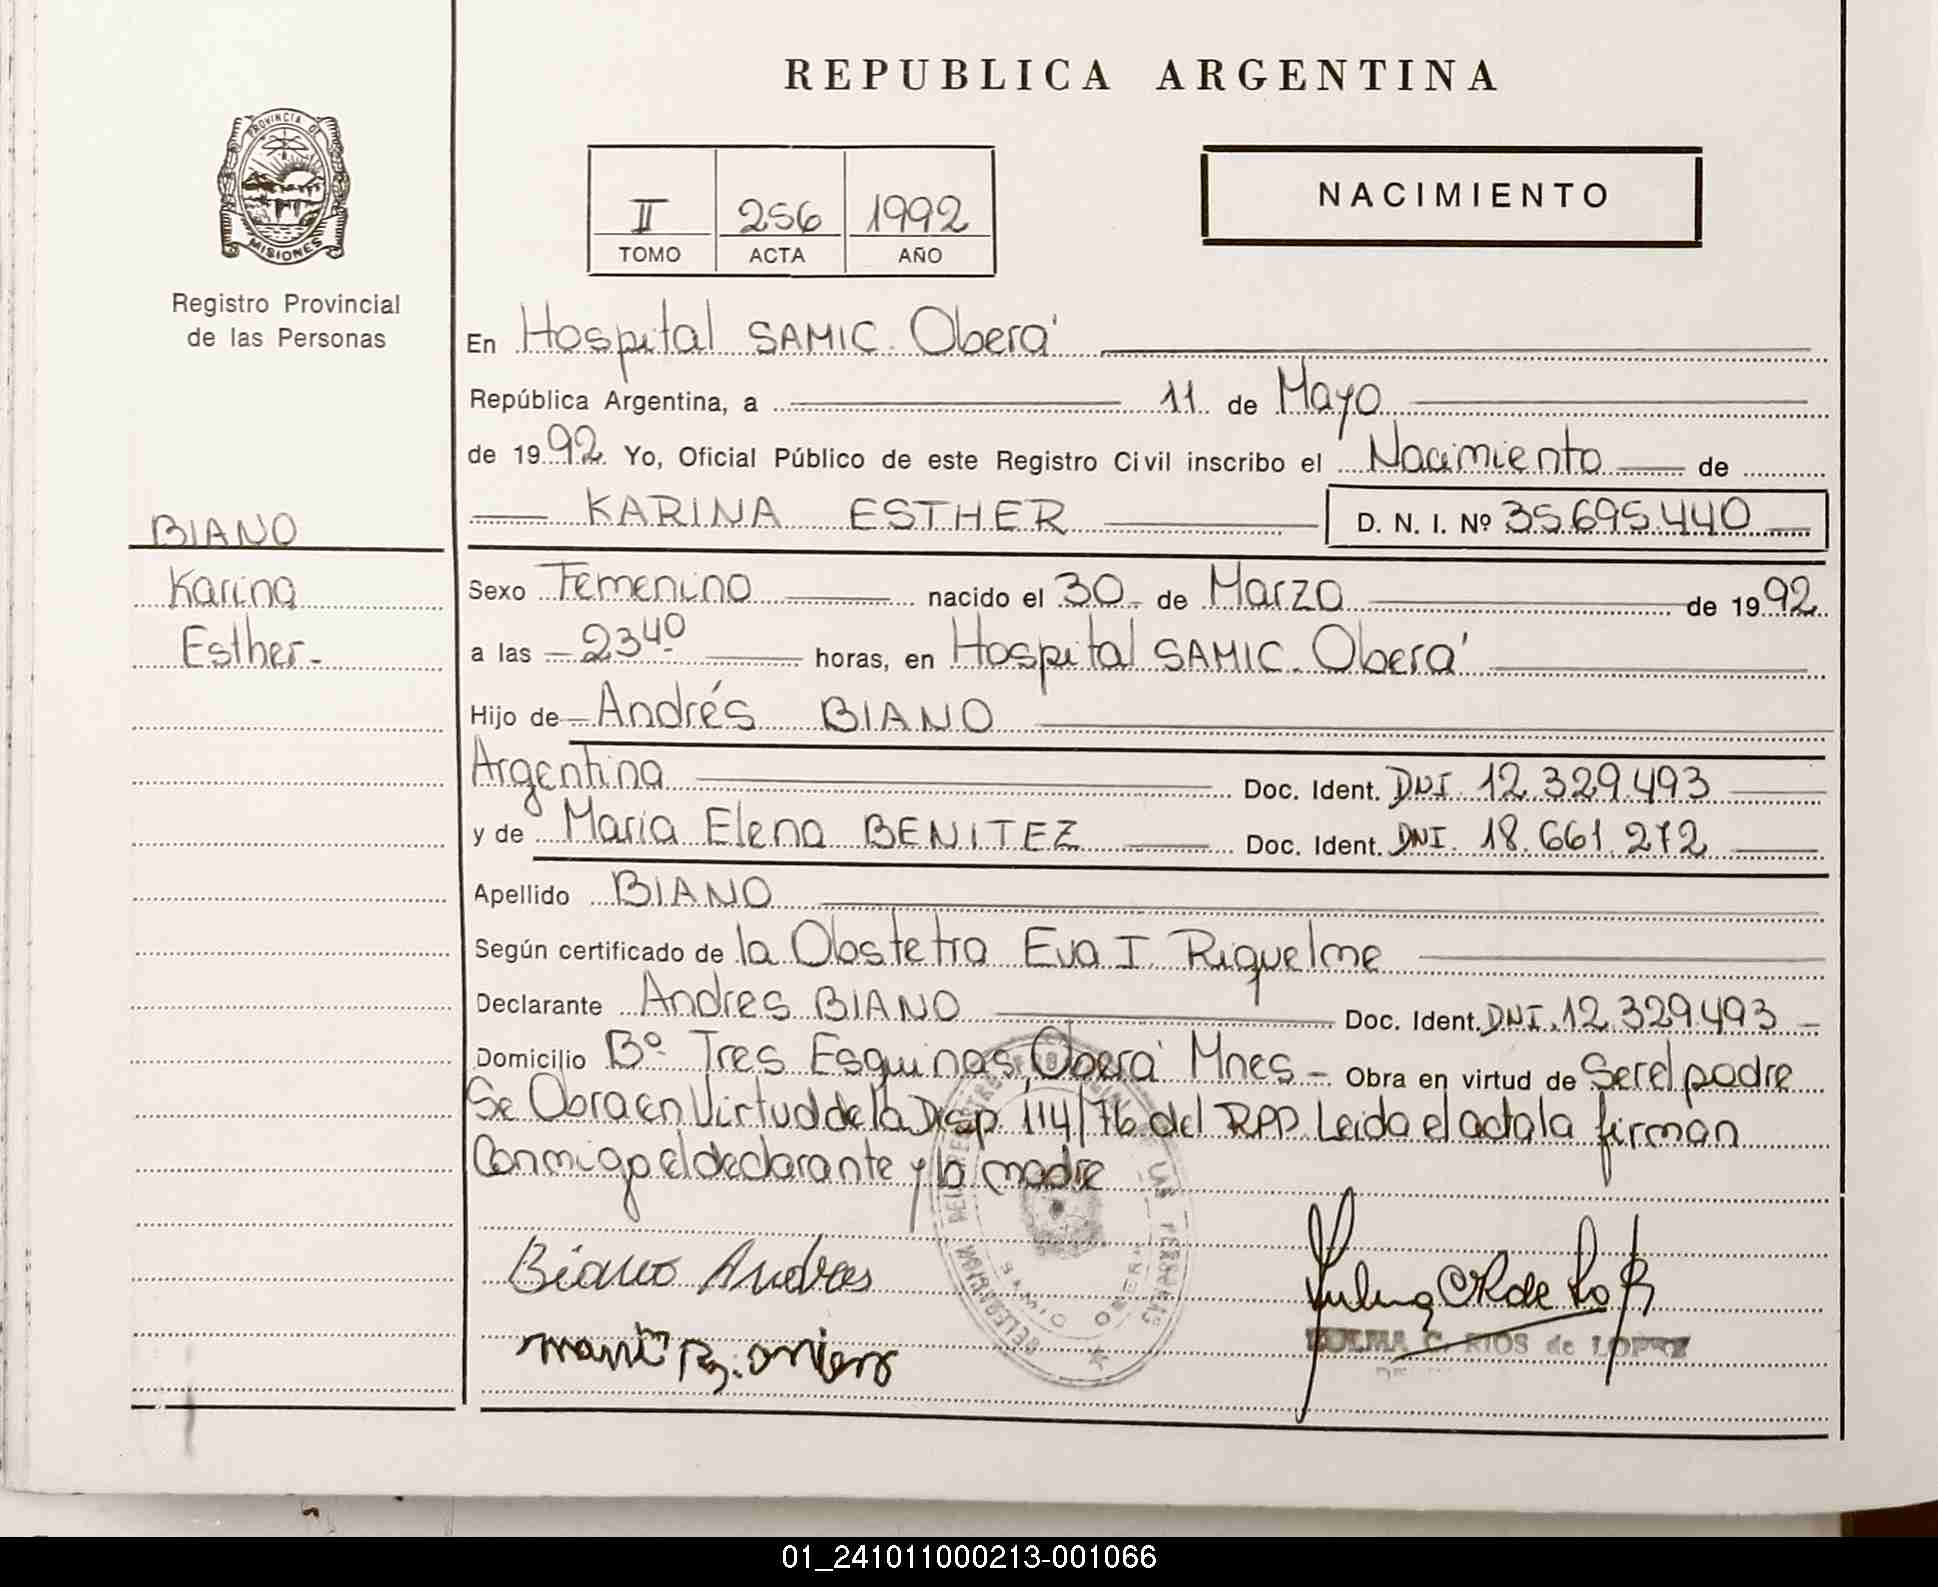 REPUBLICA ARGENTINA
PROVINCIA DE
MISIONES
Registro Provincial
de las Personas
II 256 1992
TOMO ACTA AÑO
NACIMIENTO
En Hospital SAMIC. Oberá
República Argentina, a 11 de Mayo
de 1992. Yo, Oficial Público de este Registro Civil inscribo el Nacimiento de
KARINA ESTHER D. N. I. Nº 35.695.440
BIANO
Karina
Esther-
Sexo Femenino nacido el 30 de Marzo de 1992
a las 23 40 horas, en Hospital SAMIC. Oberá
Hijo de Andrés BIANO
Argentina Doc. Ident. DNI. 12.329.493
y de Maria Elena BENITEZ Doc. Ident. DNI. 18.661.272
Apellido BIANO
Según certificado de la Obstetra Eva I. Riquelme
Declarante Andres BIANO Doc. Ident. DNI. 12.329.493
Domicilio Bº Tres Esquinas, Oberá Mnes- Obra en virtud de Ser el padre
Se Obra en Virtud de la Disp. 114/76 del RPP. Leida el acta la firman
Conmigo el declarante y la madre
Biano Andres
ZULMA C. RIOS de LOPEZ
01_241011000213-001066